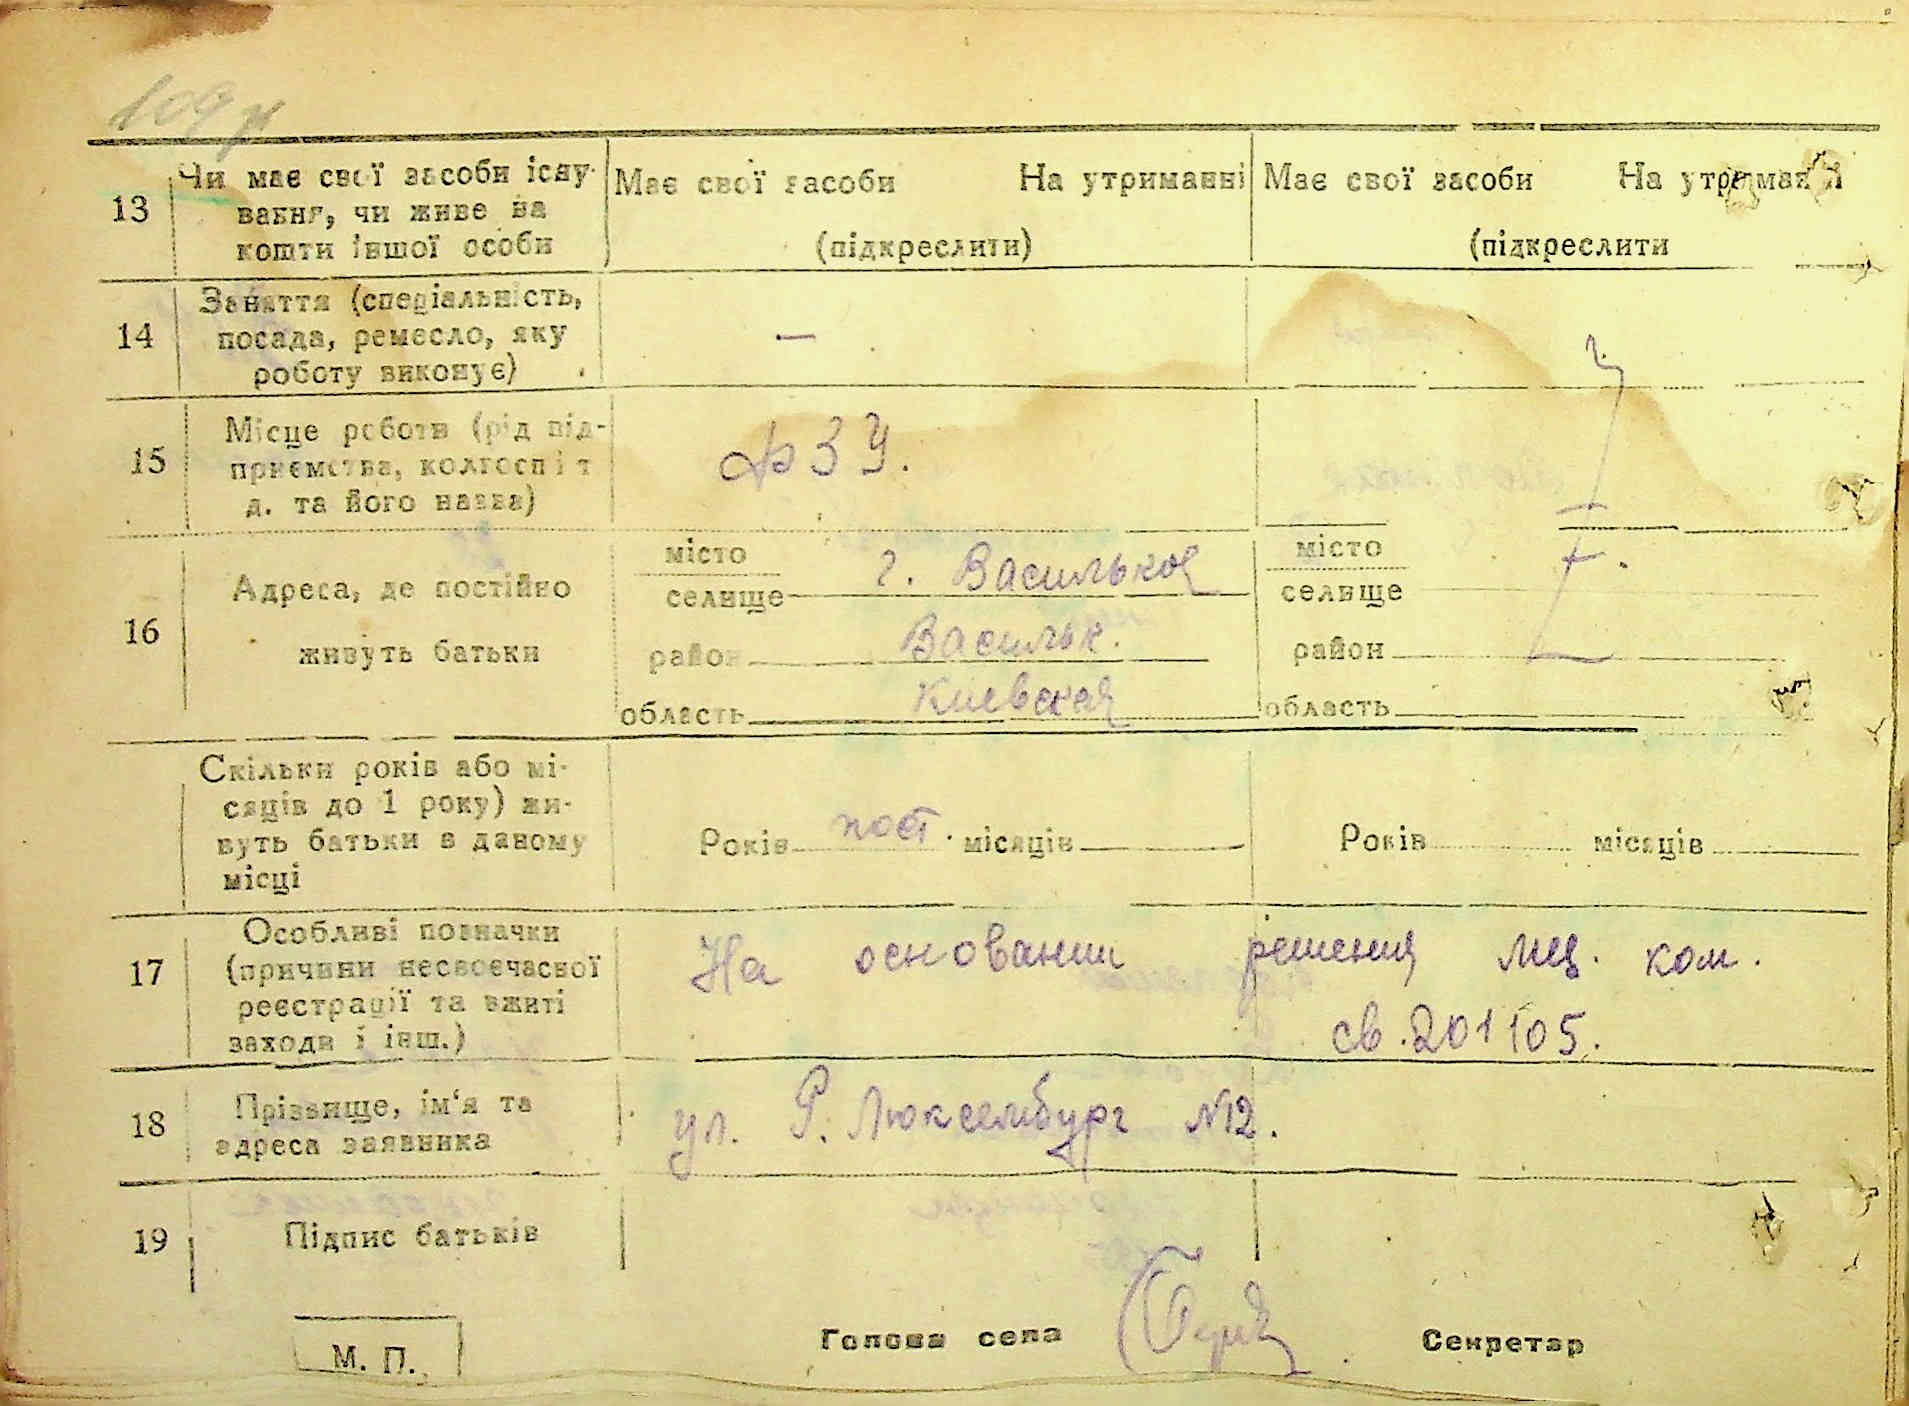 13
Чи має свої засоби існу-
вання, чи живе за
кошти іншої особи
Має свої засоби На утриманні
(підкреслити)
Має свої засоби На утриманні
(підкреслити
14
Заняття (спеціальність,
посада, ремесло, яку
роботу виконує)
—
15
Місце роботи (рід під-
приємства, колгосп і т
д. та його назва)
ФЗУ.
16
Адреса, де постійно
живуть батьки
місто
селище г. Васильков
район Васильк.
область Киевская
місто
селище
район
область
Скільки років або мі-
сяців до 1 року) жи-
вуть батьки в даному
місці
Років пост. місяців
Років місяців
17
Особливі позначки
(причини несвоєчасної
реєстрації та вжиті
заходи і інш.)
На основании решения мед. ком.
св. 201105.
18
Прізвище, ім'я та
адреса заявника
ул. Р. Люксембург №12.
19
Підпис батьків
М. П.
Голова села
Секретар